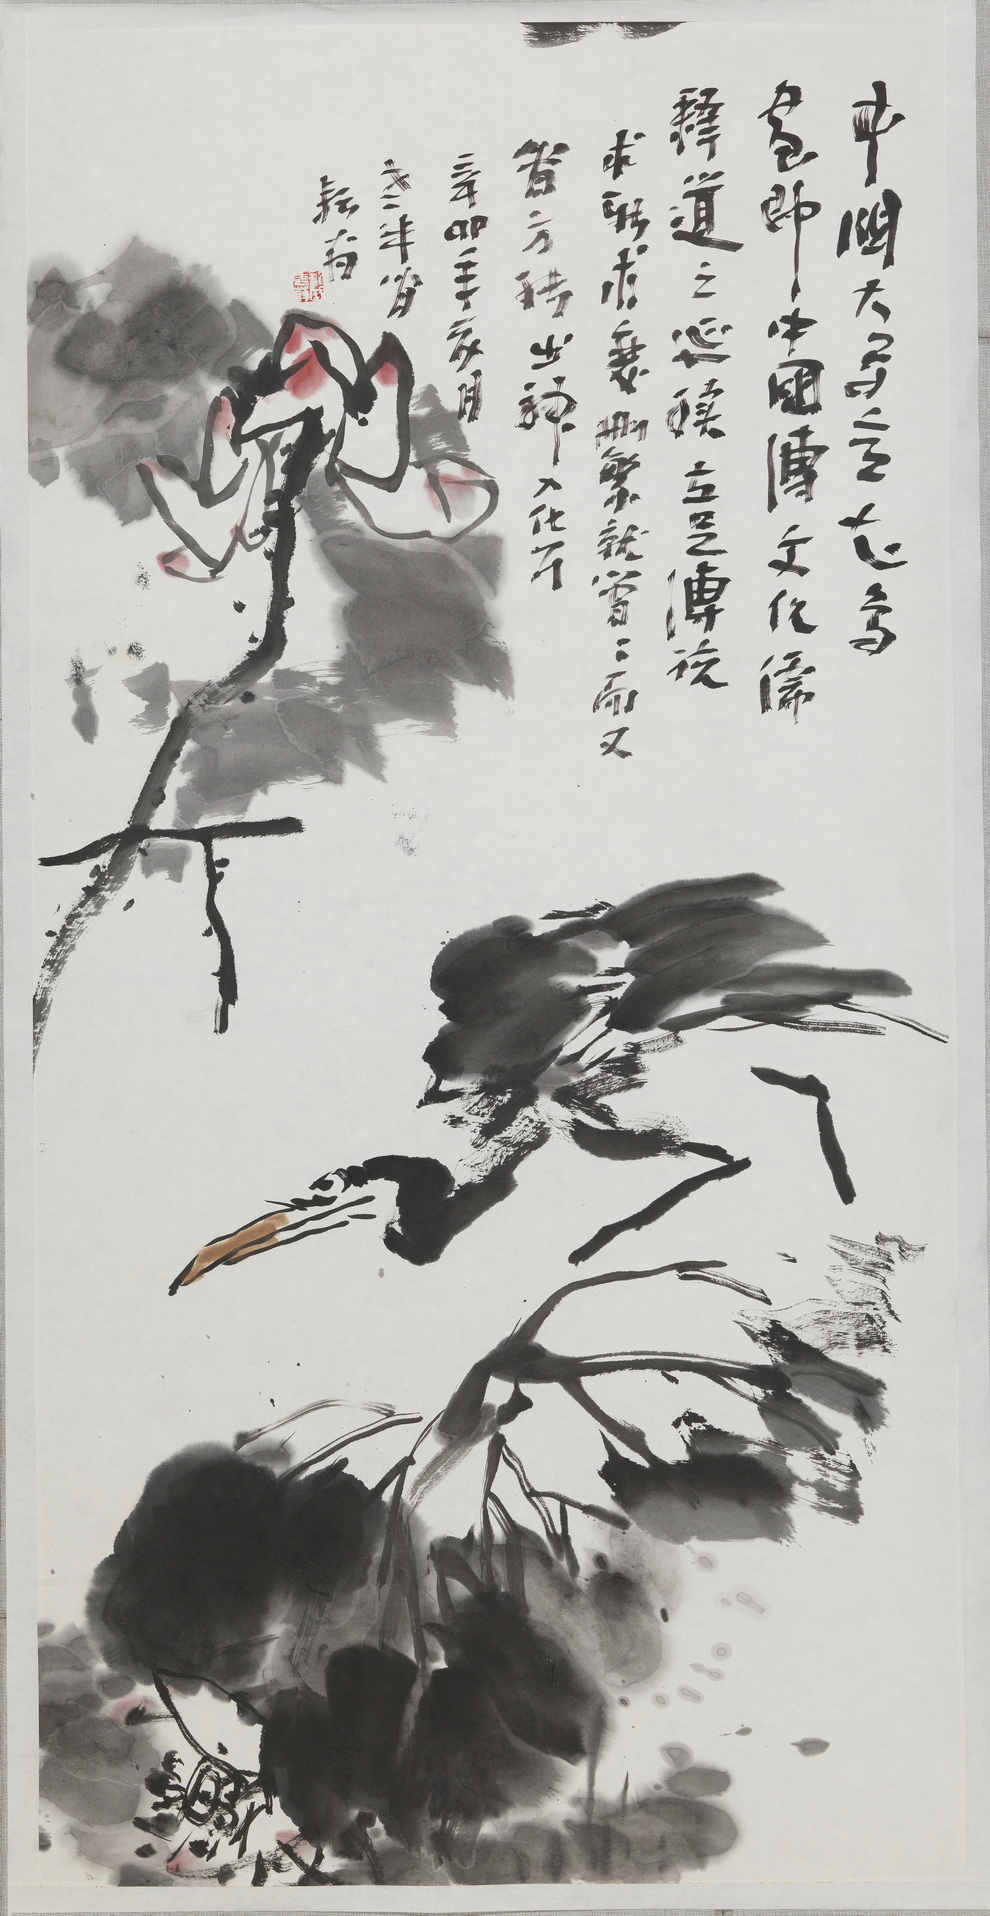 中國大寫意花鳥
畫即中國傳文化儒
釋道之延續立足傳統
求新求變刪繁就簡三而又
簡方能出神入化耳
辛卯年亥月